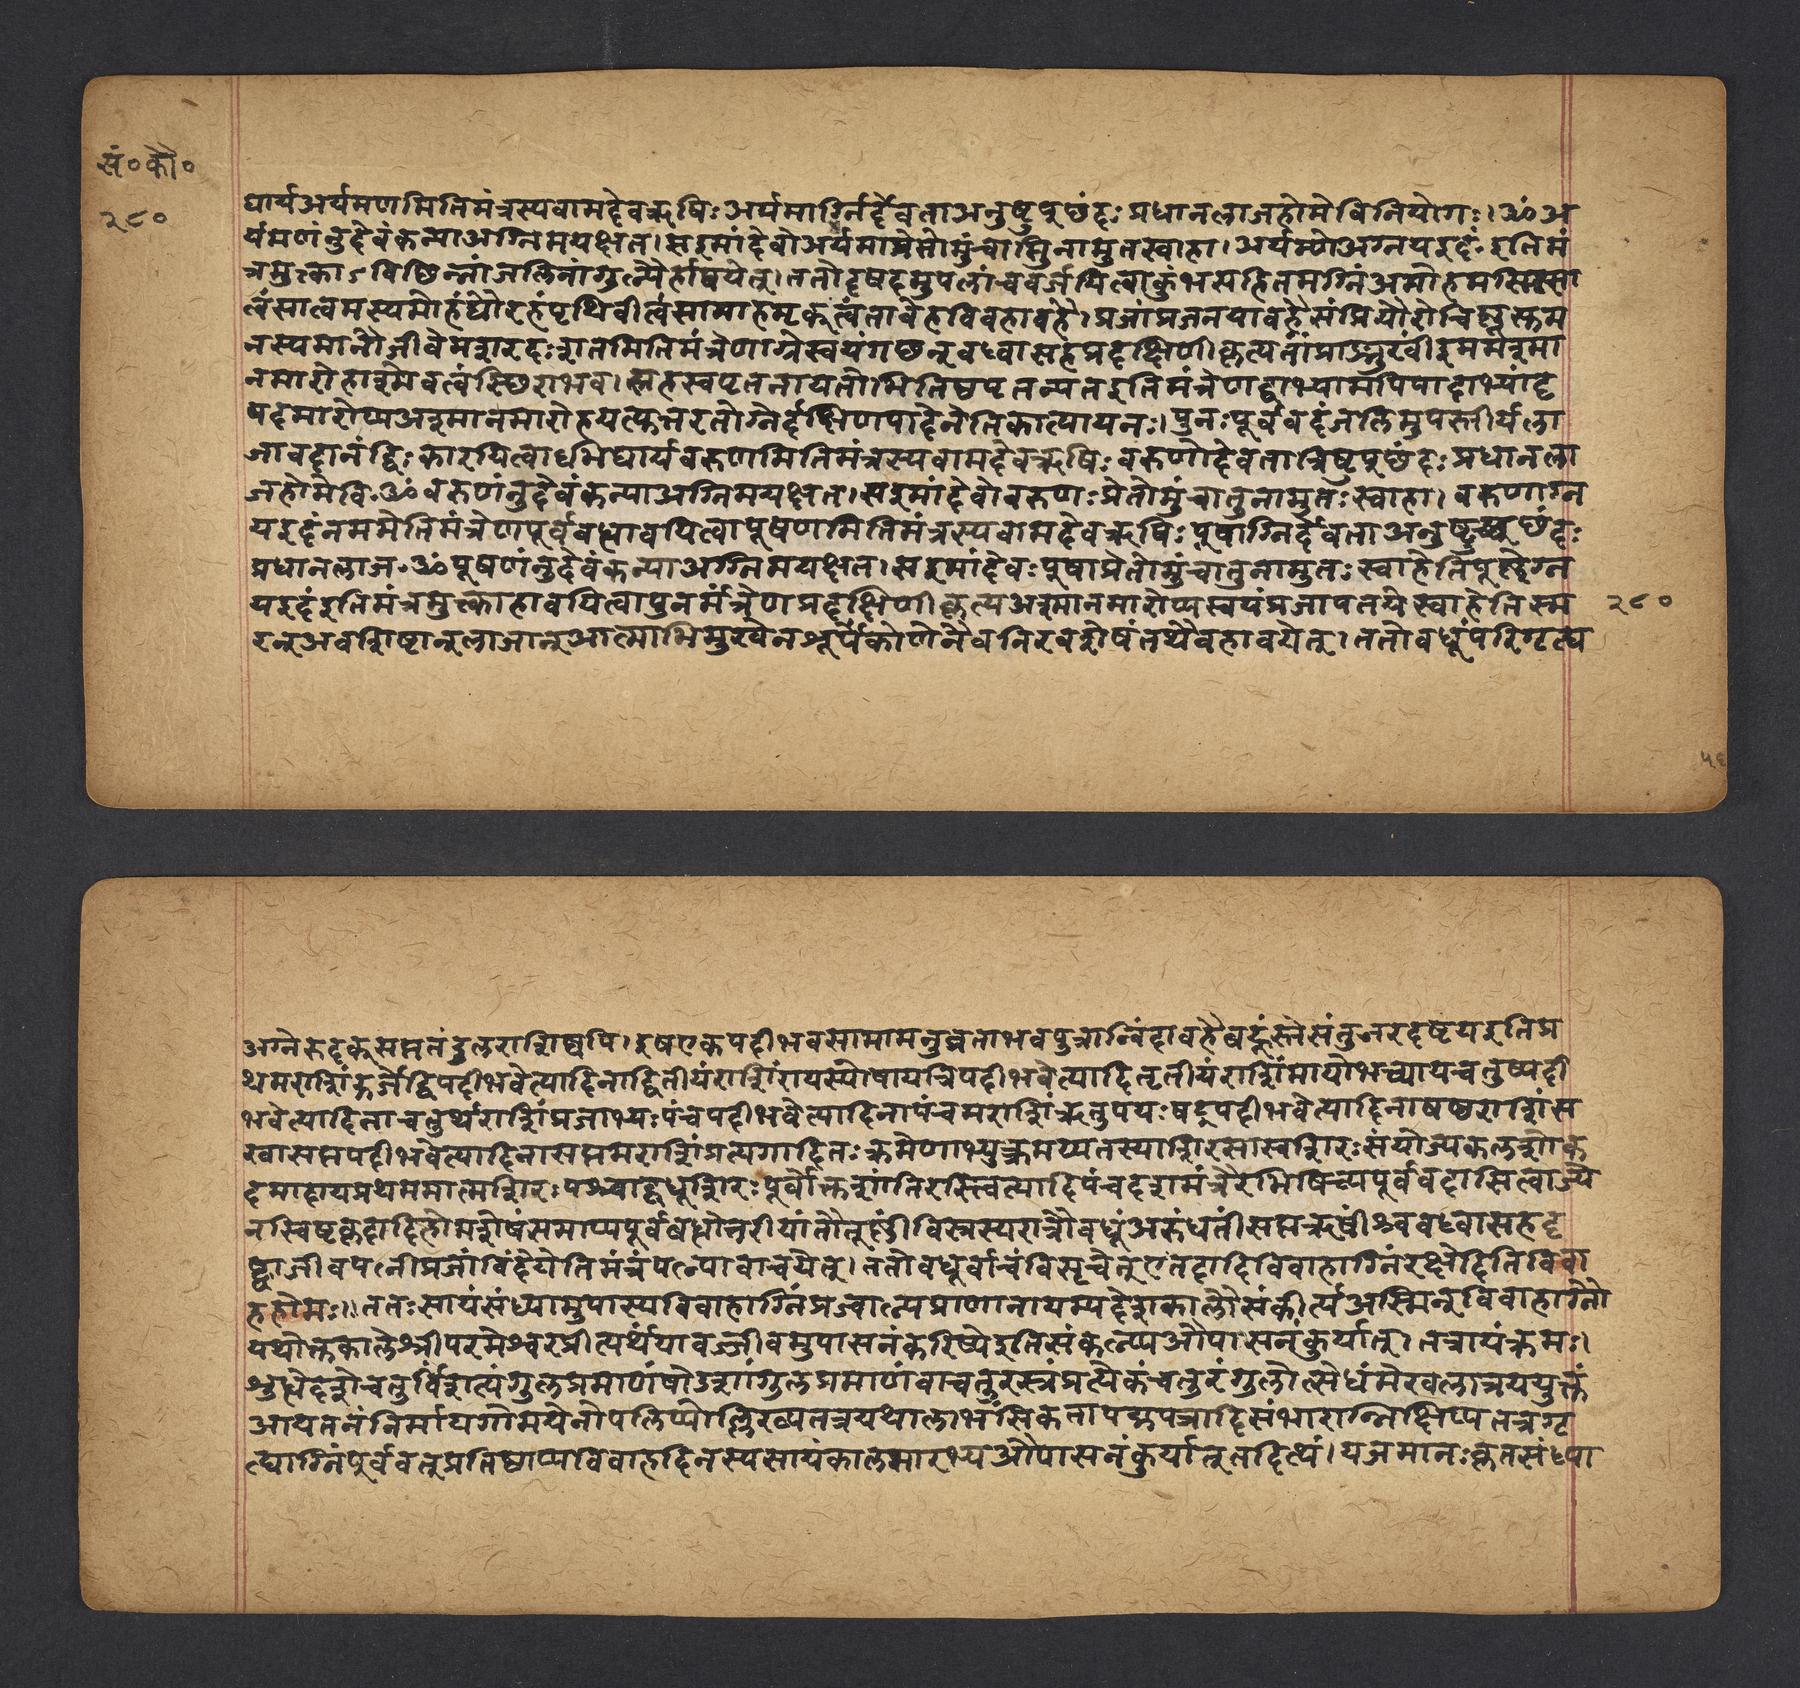 सं०कौ०
२८०
घार्यअर्यमणमितिमंत्रस्यवामदेवऋषिःअर्यमाग्निर्देवताअनुष्टुप्छंदःप्रधानलाजहोमेविनियोगः।ॐअ
र्यमणंनुदेवंकन्याअग्निमयक्षत।सइमांदेवोअर्यमाप्रेतोमुंचातुनामुतस्वाहा।अर्यम्णेअग्नयइदं॰इतिमं
त्रमुक्त्काऽविछिन्नांजलिनांगुल्यैर्हावयेत्।ततोदृषदमुपलांचवर्जयित्वाकुंभसहितमग्निंअमोहमस्मिसा
त्वंसात्वमस्यमोहंद्यौरहंपृथिवीत्वंसामाहमृक्त्वंतावेहविवहावहै।प्रजांप्रजनयावहैसंप्रियौरोचिष्णूसुम
नस्यमानौजीवेमशरदःशतमितिमंत्रेणाग्नेस्वयंगछन्वध्वासहप्रदक्षिणीकृत्यतांप्राङ्मुखींइममश्मा
नमारोहाश्मेवत्वंस्छिराभव।सहस्वपृतनायतोभितिष्ठपृतन्यतइतिमंत्रेणद्वाभ्यामपिपादाभ्यांदृ
षदमारोप्यअश्मानमारोहयत्युत्तरतोग्नेर्दक्षिणपादेनेतिकात्यायनः।पुनःपूर्ववदंजलिमुपस्तीर्यला
जावदानंद्विःकारयित्वाधभिघार्यवरुणमितिमंत्रस्यवामदेवऋषिःवरुणोदेवतात्रिष्टुप्छंदःप्रधानला
जहोमेवि॰ॐवरुणंनुदेवंकन्याअग्निमयक्षत।सइमांदेवोवरुणःप्रेतोमुंचातुनामुतःस्वाहा।वरुणाग्न
यइदंनममेतिमंत्रेणपूर्ववद्धावयित्वापूषणमितिमंत्रस्यवामदेवऋषिःपूषाग्निर्देवताअनुष्टुप्छंदः
प्रधानलाज॰ॐपूषणंनुदेवंकन्याअग्निमयक्षत।सइमांदेवःपूषाप्रेतोमुंचातुनामुतःस्वाहेतिपूष्णेग्न
यइदंइतिमंत्रमुक्त्काहावयित्वापुनर्मंत्रेणप्रदक्षिणीकृत्यअश्मानमारोप्यस्वयंप्रजापतयेस्वाहेतिस्म
२८०
रन्अवशिष्टान्लाजान्आत्माभिमुखेनशूर्पकोणेनैवनिरवशेषंतथैवहावयेत्।ततोवधूंपरिगृह्य
५६
अग्नेरुदक्सप्ततंडुलराशिष्वपि।इषएकपदीभवसामामनुव्रताभवपुत्रान्विंदावहैबहूंस्तेसंतुजरदष्टयइतिप्र
थमराशिंऊर्जेद्विपदीभवेत्यादिनाद्वितीयंराशिंरायस्पोषायत्रिपदीभवेत्यादितृतीयंराशिंमायोभव्यायचतुष्पदी
भवेत्यादिनाचतुर्थराशिंप्रजाभ्यःपंचपदीभवेत्यादिनापंचमराशिंऋतुपयःषट्पदीभवेत्यादिनाषष्ठराशिंस
खासप्तपदीभवेत्यादिनासप्तमराशिंप्रत्यगादितःक्रमेणाभ्युत्क्रमय्यतस्याशिरसास्वशिरःसंयोज्यकलशोक
दमादायप्रथममात्मशिरःपश्चाद्वधूशिरःपूर्वोक्तशांतिरस्त्वित्यादिपंचदशमंत्रैरभिषिच्यपूर्ववदासित्वाज्ये
नस्विष्टकृदादिहोमशेषंसमाप्यपूर्वबद्धोत्तरीयांतौतूष्णींविस्रस्यरात्रौवधूंअरुंधतींसप्तऋषींध्रुवंवध्वासहदृ
ष्ट्वाजीवपत्नीप्रजांविंदेयेतिमंत्रंपत्न्यावाचयेत्।ततोवधूर्वाचंविसृचेत्एतदादिविवाहाग्निंरक्षेदितिविवा
हहोमः।।ततःसायंसंध्यामुपास्यविवाहाग्निंप्रज्वाल्यप्राणानायम्यदेशकालौसंकीर्त्यअस्मिन्विवाहाग्नौ
यथोक्तकालेश्रीपरमेश्वरप्रीत्यर्थंयावज्जीवमुपासनंकरिष्येइतिसंकल्प्यऔपासनंकुर्यात्।तत्रायंक्रमः।
शुद्धेदेशेचतुर्विंशत्यंगुलप्रमाणंषोडशांगुलप्रमाणंवाचतुरस्रंप्रत्येकंचतुरंगुलोत्सेधंमेखलात्रययुक्तं
आयतनंनिर्मायगोमयेनोपलिप्योल्लिख्यतत्रयथालाभंसिकतापद्मपत्रादिसंभारान्निक्षिप्यतत्रगृ
ह्याग्निंपूर्ववत्प्रतिष्ठाप्यविवाहदिनस्यसायंकालमारभ्यऔपासनंकुर्यात्तदित्थं।यजमानःकृतसंध्या